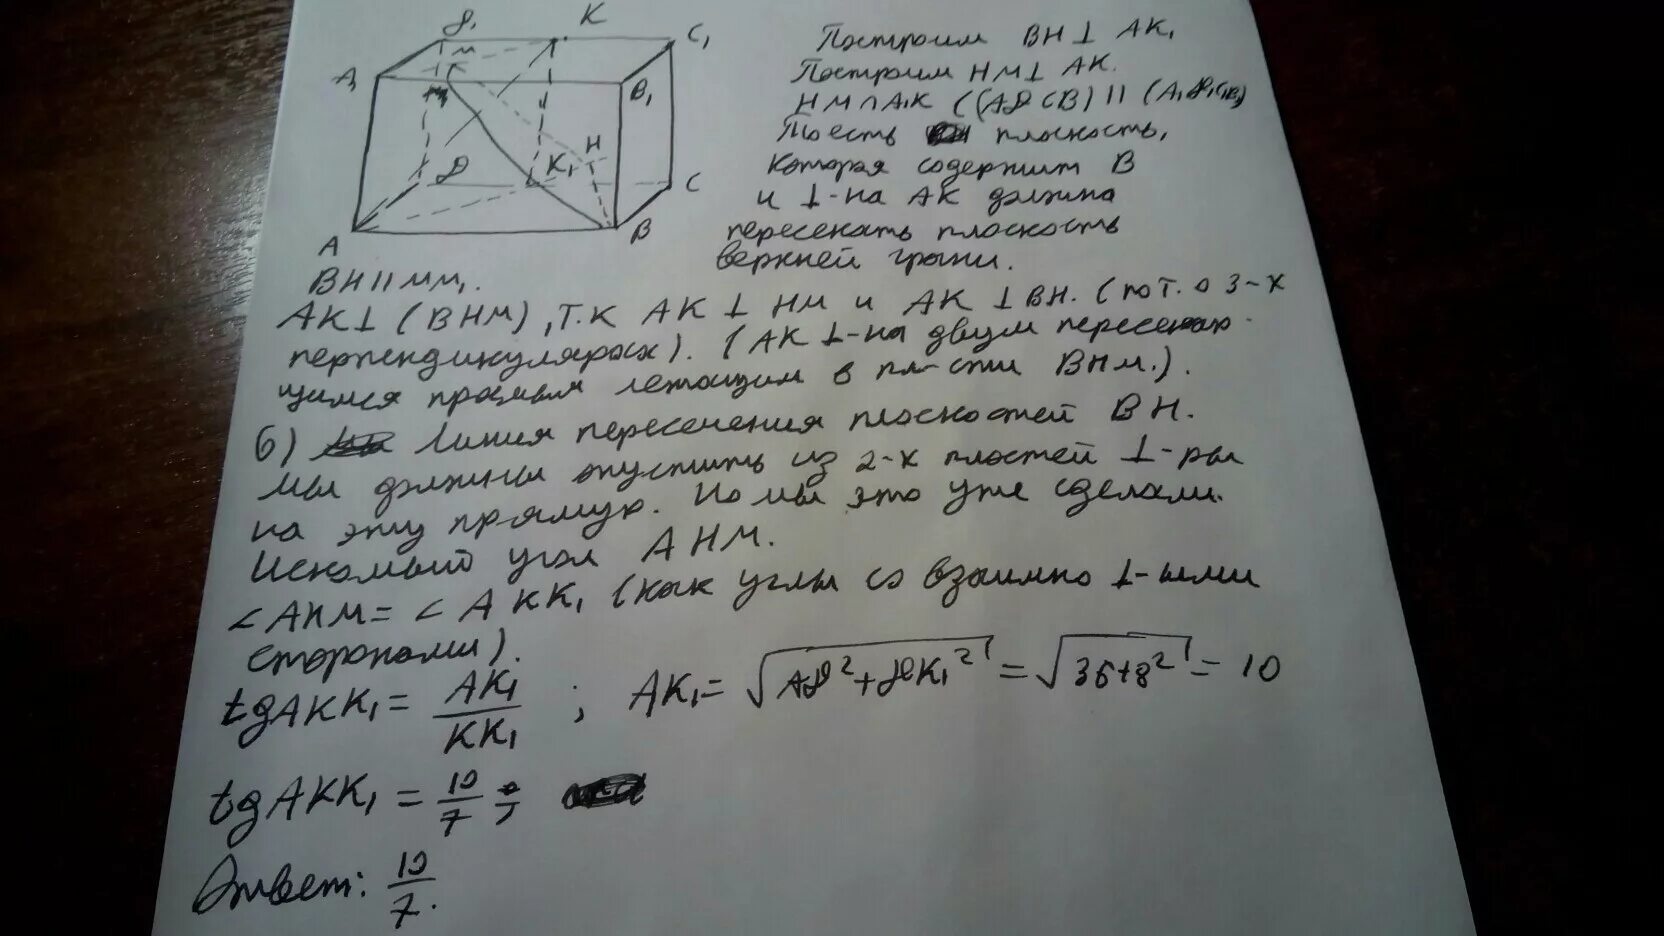 D₁ K C₁
A₁ M B₁
M₁ D K₁ H C
A B
Построим BH ⊥ AK₁
Построим HM ⊥ AK.
HM ∩ A₁K ((ADCB) || (A₁D₁C₁B₁)
То есть плоскость,
которая содержит B
и ⊥-на AK должна
пересекать плоскость
верхней грани.
BH || MM₁.
AK ⊥ (BHM), т.к AK ⊥ HM и AK ⊥ BH. (по т. о 3-х
перпендикулярах). (AK ⊥-на двум пересекаю-
щимся прямым лежащим в пл-сти BHM.).
б) Линия пересечения плоскостей BH.
Мы должны опустить из 2-х плостей ⊥-ры
на эту прямую. Но мы это уже сделали.
Искомый угол AHM.
∠AHM = ∠AKK₁ (как углы со взаимно ⊥-ыми
сторонами).
tgAKK₁ = AK₁/KK₁ ; AK₁ = √(AD² + DK₁²) = √(36+8²) = 10
tgAKK₁ = 10/7 ;
Ответ: 10/7.